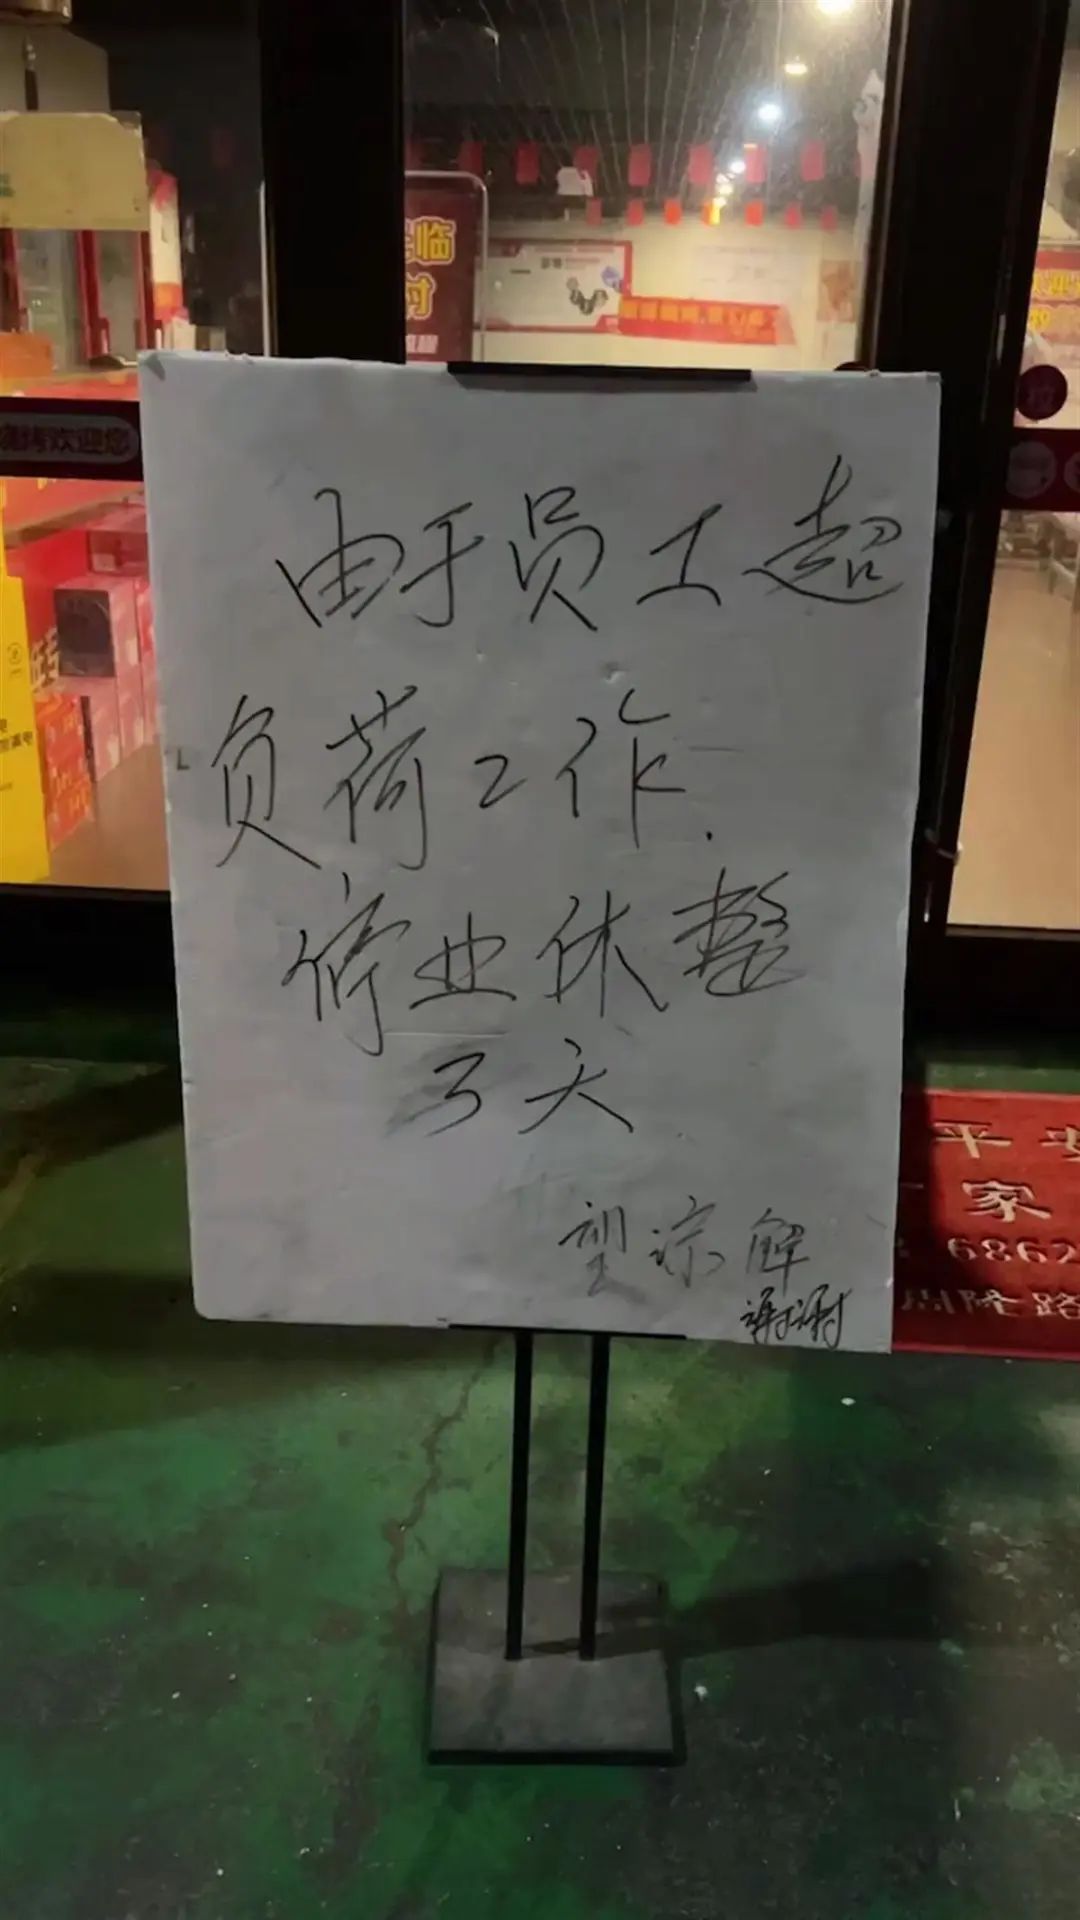 由于员工超
负荷工作.
停业休整
3天
望谅解
谢谢
临
欢迎您
平安
家
6862
隆路